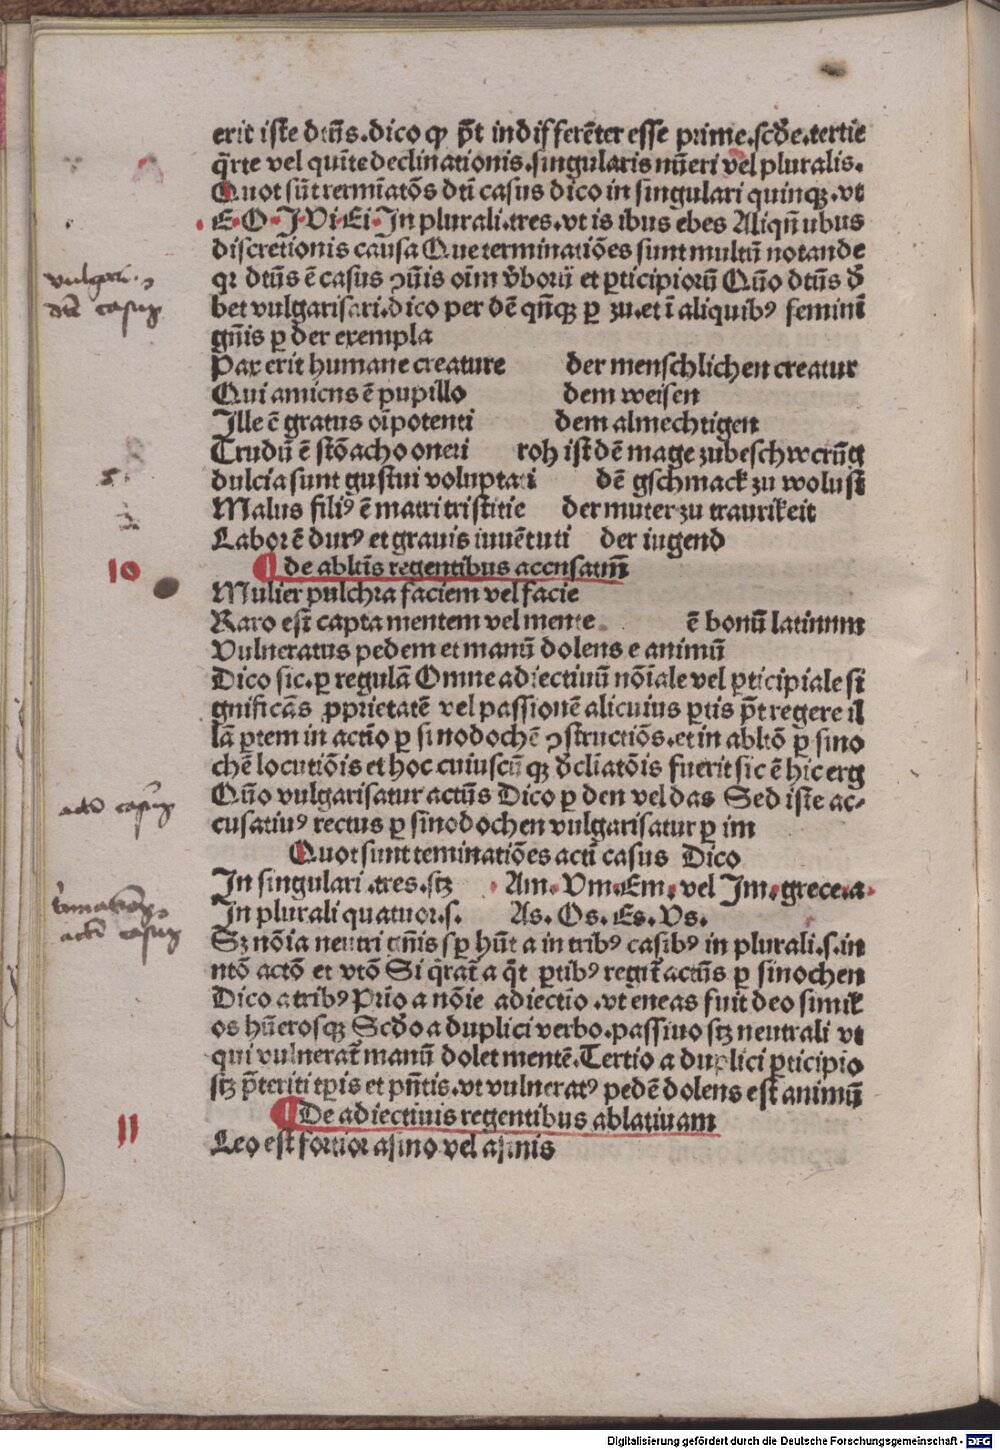 erit iste dtūs.dico ꝙ p̄t indifferēter esse prime.scd̄e.tertie
q̄rte vel quīte declinationis.singularis nūeri vel pluralis.
Quot sūt termīatōs dtī casus dico in singulari quinqꝫ.vt
E.O.I.Vi.Ei.In plurali.tres.vt is ibus ebes Aliqn̄ ubus
discretionis causa Que terminatiōes sunt multū notande
qꝛ dtūs ē casus ꝯūis oīm v̄borū et ꝑticipiorū Quō dtūs d̄
bet vulgarisari.dico per dē qn̄qꝫ ꝑ zu.et ī aliquibꝰ feminī
gn̄is ꝑ der exempla
Pax erit humane creature der menschlichen creatur
Qui amicus ē pupillo dem weisen
Ille ē gratus oīpotenti dem almechtigen
Trudū ē stōacho oneri roh ist dē mage zubeschwerūg
dulcia sunt gustui voluptati dē gschmack zu wolust
Malus filiꝰ ē matri tristitie der muter zu traurikeit
Labor ē durꝰ et grauis iuuētuti der iugend
10 de abltīs regentibus accusatiū
Mulier pulchra faciem vel facie
Raro est capta mentem vel mente ē bonū latinum
Vulneratus pedem et manū dolens e animū
Dico sic.ꝑ regulā Omne adiectiuū nōiale vel ꝑticipiale si
gnificās ꝓprietatē vel passionē alicuius ꝑtis p̄t regere il
lā ꝑtem in actīo ꝑ sinodochē ꝯstructiōs.et in abltō ꝑ sino
chē locutiōis et hoc cuiuscūqꝫ d̄cliatōis fuerit sic ē hic erg
Quō vulgarisatur actūs Dico ꝑ den vel das Sed iste ac-
cusatiuꝰ rectus ꝑ sinodochen vulgarisatur ꝑ im
Quot sunt teminatiōes actī casus Dico
In singulari.tres.stꝫ Am.Vm.Em.vel Im.grece.a.
In plurali quatuor.s. As.Os.Es.Vs.
Sꝫ nōia neutri gn̄is sꝑ hūt a in tribꝰ casibꝰ in plurali.s.in
ntō actō et vtō Si q̄rat̄ a q̄t ꝑtibꝰ regit̄ actūs ꝑ sinochen
Dico a tribꝰ Prīo a nōie adiectīo.vt eneas fuit deo simik
os hūerosqꝫ Scd̄o a duplici verbo.passiuo stꝫ neutrali vt
qui vulnerat̄ manū dolet mentē.Tertio a duplici ꝑticipio
stꝫ p̄teriti tꝑis et pn̄tis.vt vulneratꝰ pedē dolens est animū
11 De adiectiuis regentibus ablatiuam
Leo est fortior asino vel asinis
vulgari
dti casus
acti casus
terminationes
acti casus
Digitalisierung gefördert durch die Deutsche Forschungsgemeinschaft - DFG